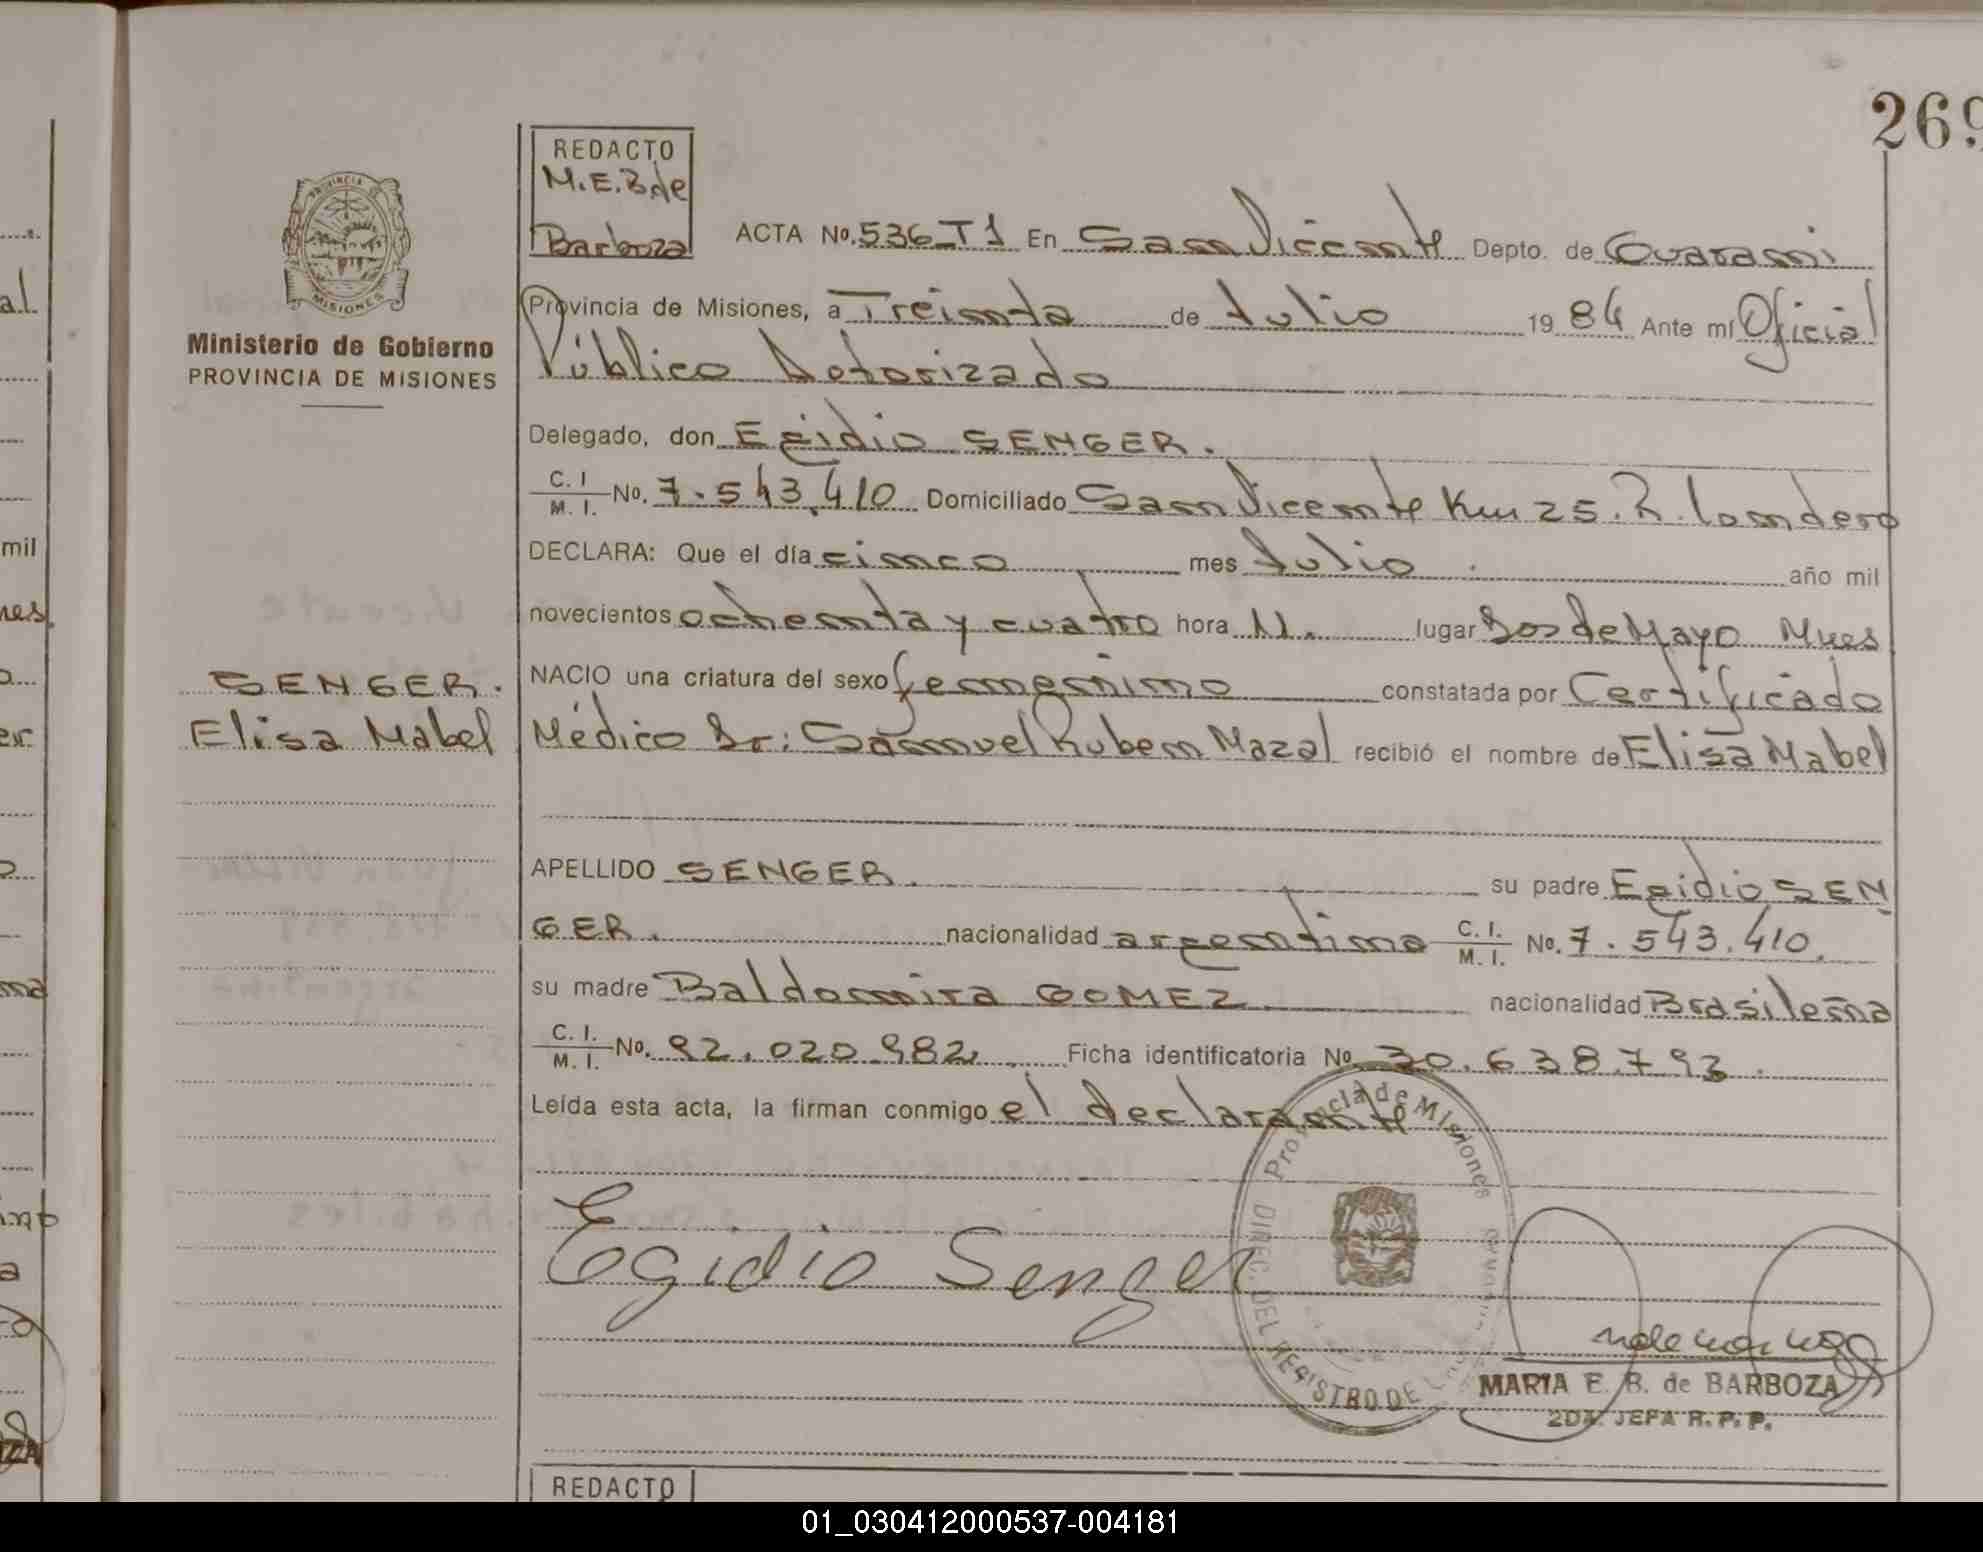 269
REDACTO
M.E.B de
Barboza
PROVINCIA DE
MISIONES
Ministerio de Gobierno
PROVINCIA DE MISIONES
ACTA No. 536 T1 En San Vicente Depto. de Guarani
Provincia de Misiones, a Treinta de Julio 1984 Ante mí Oficial
Público Autorizado
Delegado, don Egidio SENGER.
C. I. M. I. No. 7.543.410 Domiciliado San Vicente Km 25. R. Londero
DECLARA: Que el día cinco mes Julio. año mil
novecientos ochenta y cuatro hora 11. lugar Dos de Mayo Mnes
NACIO una criatura del sexo femenino constatada por Certificado
SENGER.
Elisa Mabel
Médico Dr: Samuel Ruben Mazal recibió el nombre de Elisa Mabel
APELLIDO SENGER. su padre Egidio SEN
GER. nacionalidad argentino C. I. M. I. No. 7.543.410.
su madre Baldomira GOMEZ. nacionalidad Brasileña
C. I. M. I. No. 92.020.982. Ficha identificatoria No. 30.638.793.
Leída esta acta, la firman conmigo el declarante
Egidio Senger
Provincia de Misiones
DIREC. DEL REGISTRO DE
MARIA E. B. de BARBOZA
2DA. JEFA R. P. P.
REDACTO
01_030412000537-004181